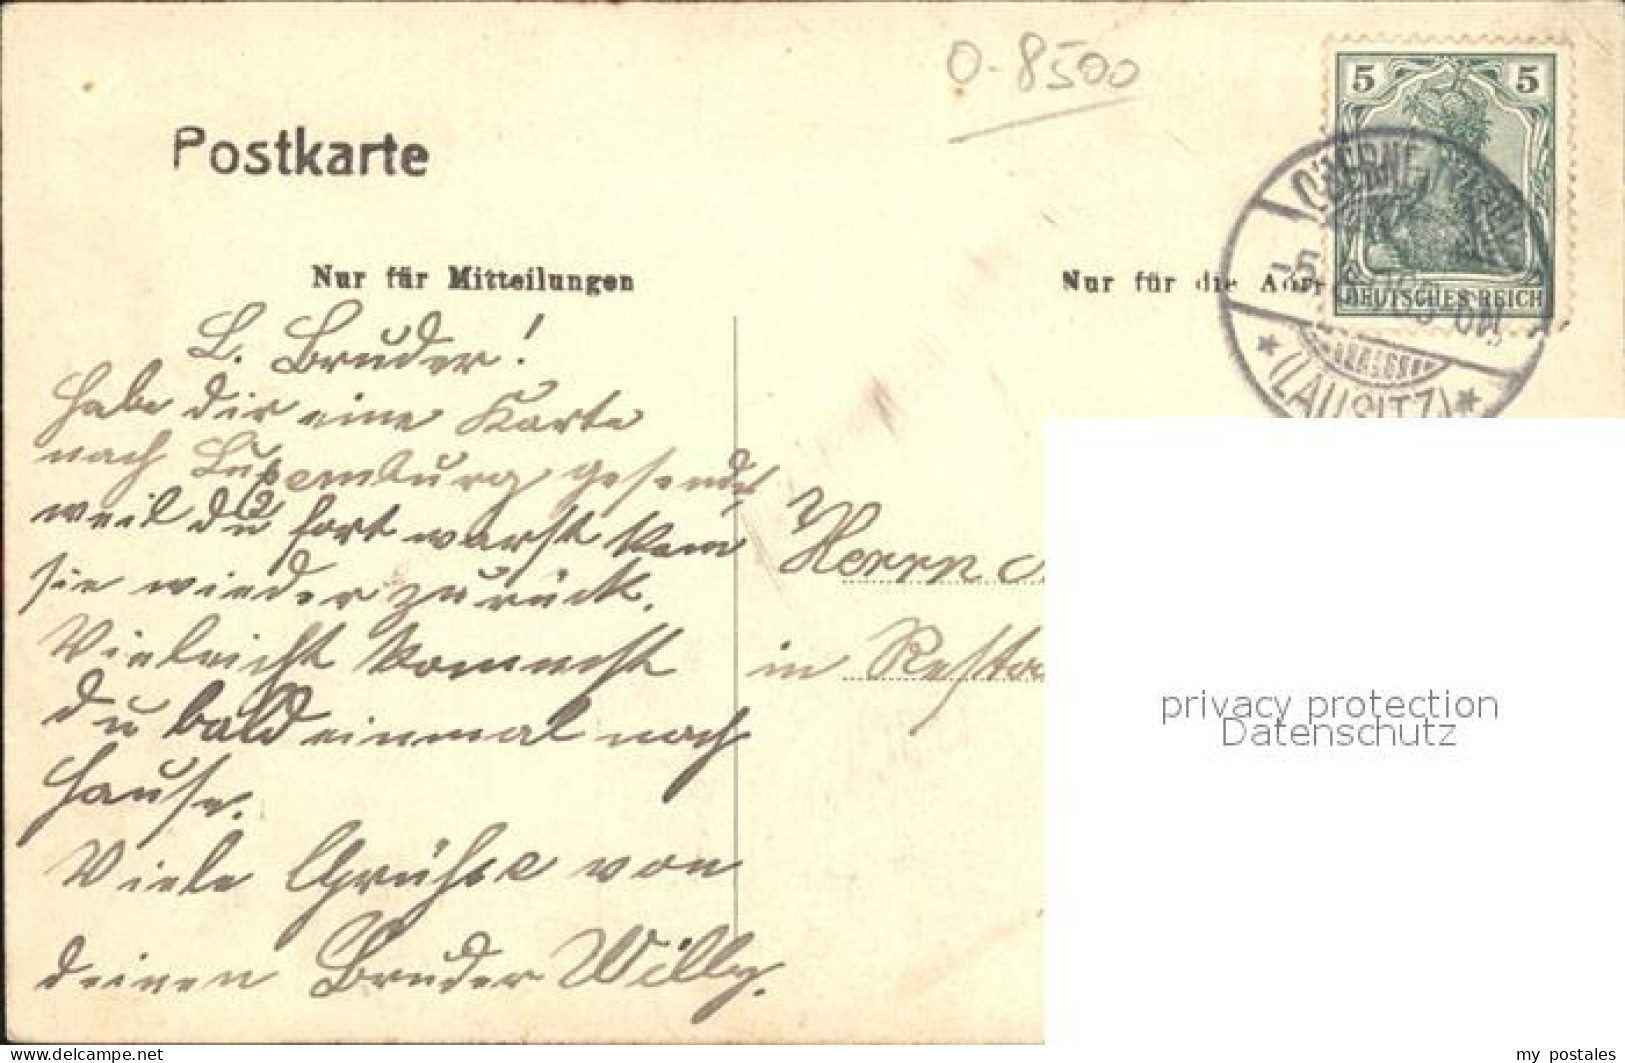 O-8500
5 5
Postkarte
DEUTSCHES REICH
Nur für Mitteilungen
Nur für die Adr
-5.
(LAUSITZ)
L. Bruder!
Habe dir eine Karte
nach Luxemburg gesendet,
weil du fort warst kam
sie wieder zurück.
Vielleicht kommst
du bald einmal nach
Hause.
Viele Grüße von
deinen Bruder Willy.
Herrn
in Resta
privacy protection
Datenschutz
www.delcampe.net
my_postales